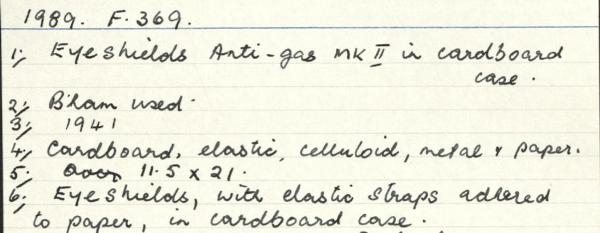 1989. F. 369.
1; Eyeshields Anti-gas MK II in cardboard
case.
2; B'ham used.
3; 1941
4; Cardboard, elastic, celluloid, metal & paper.
5; 11.5 x 21.
6; Eyeshields, with elastic straps adhered
to paper, in cardboard case.